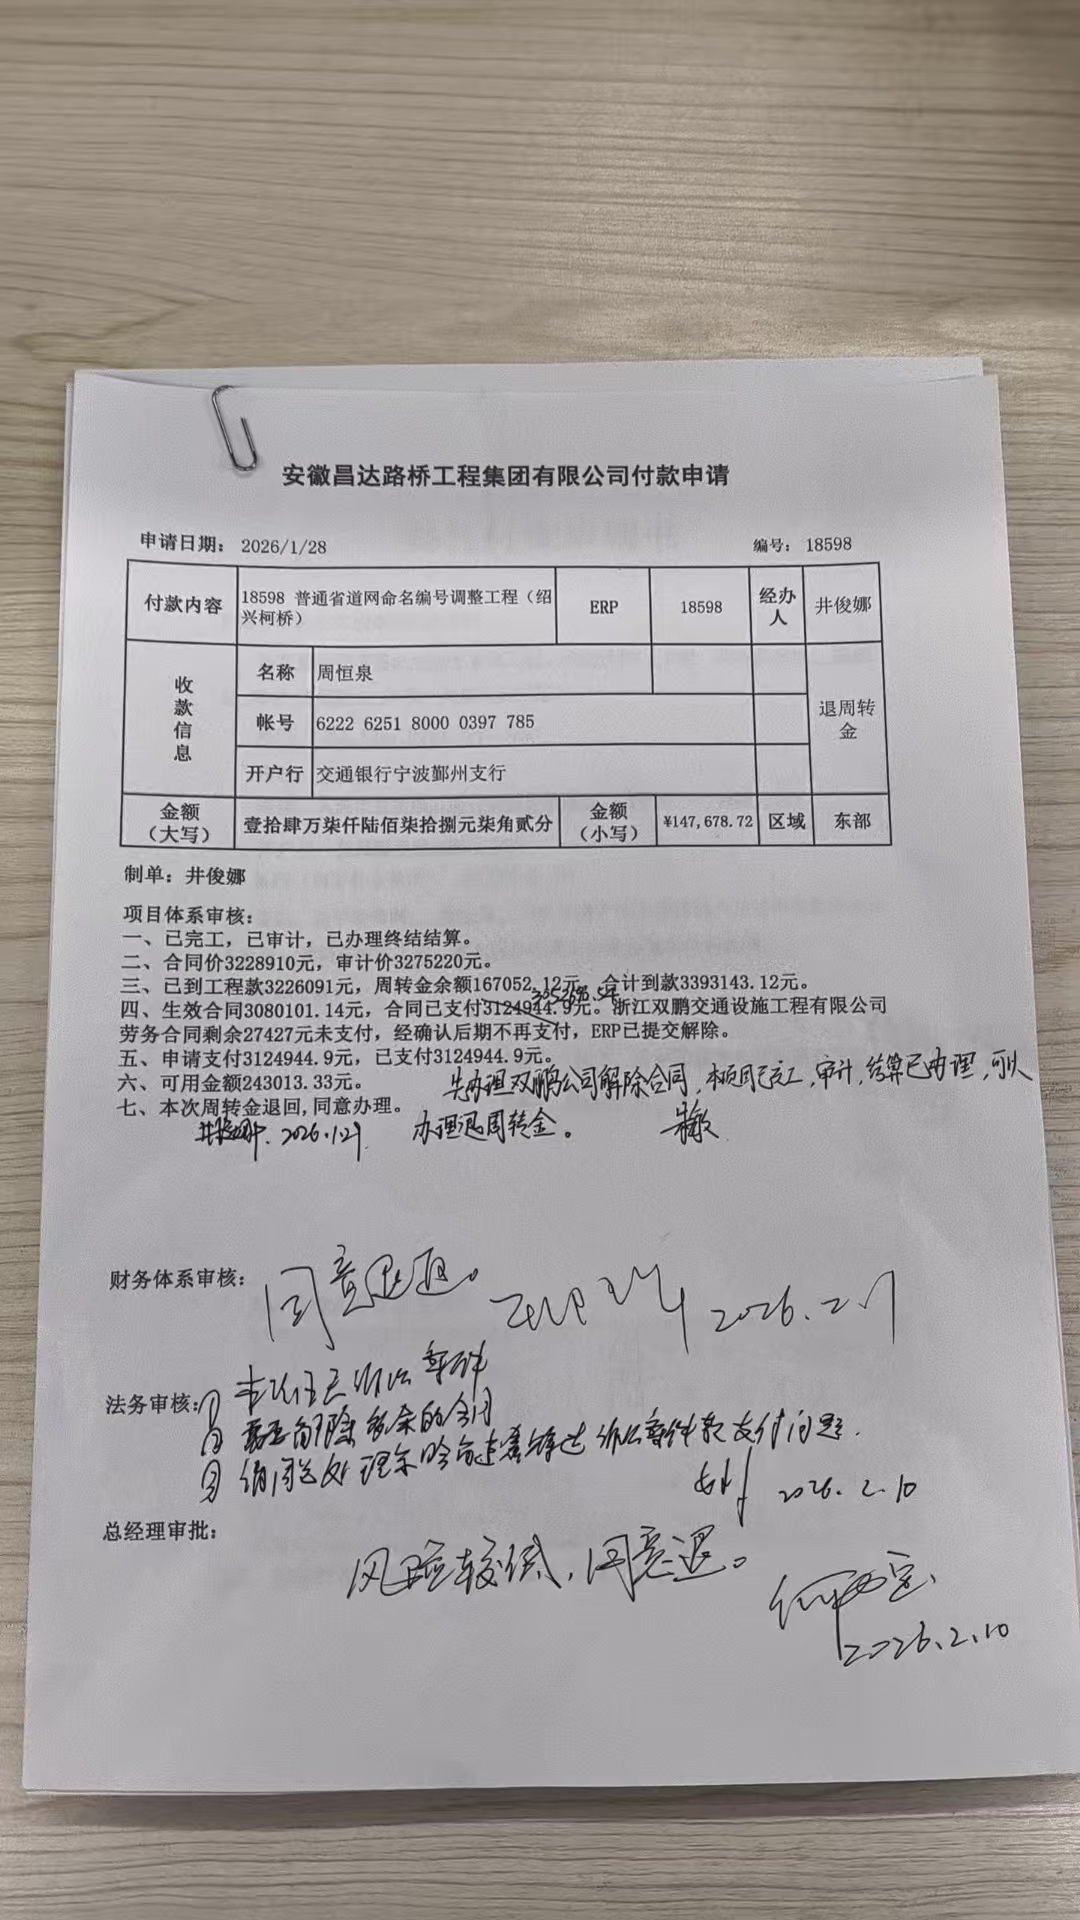 安徽昌达路桥工程集团有限公司付款申请
申请日期: 2026/1/28 编号: 18598
付款内容 18598 普通省道网命名编号调整工程（绍兴柯桥） ERP 18598 经办人 井俊娜
收款信息 名称 周恒泉 退周转金
帐号 6222 6251 8000 0397 785
开户行 交通银行宁波鄞州支行
金额（大写） 壹拾肆万柒仟陆佰柒拾捌元柒角贰分 金额（小写） ¥147,678.72 区域 东部
制单: 井俊娜
项目体系审核:
一、已完工，已审计，已办理终结结算。
二、合同价3228910元，审计价3275220元。
三、已到工程款3226091元，周转金余额167052.12元，合计到款3393143.12元。
四、生效合同3080101.14元，合同已支付3124944.9元。浙江双鹏交通设施工程有限公司
劳务合同剩余27427元未支付，经确认后期不再支付，ERP已提交解除。
五、申请支付3124944.9元，已支付3124944.9元。
六、可用金额243013.33元。
先办理双鹏公司解除合同，本项目已完工，审计，结算已办理，可以
七、本次周转金退回,同意办理。
办理退周转金。
井俊娜. 2026.1.29.
财务体系审核:
同意退。 2026.2.
法务审核:
解除多余的合同
2026.2.10
总经理审批:
风险较低，同意退。
2026.2.10